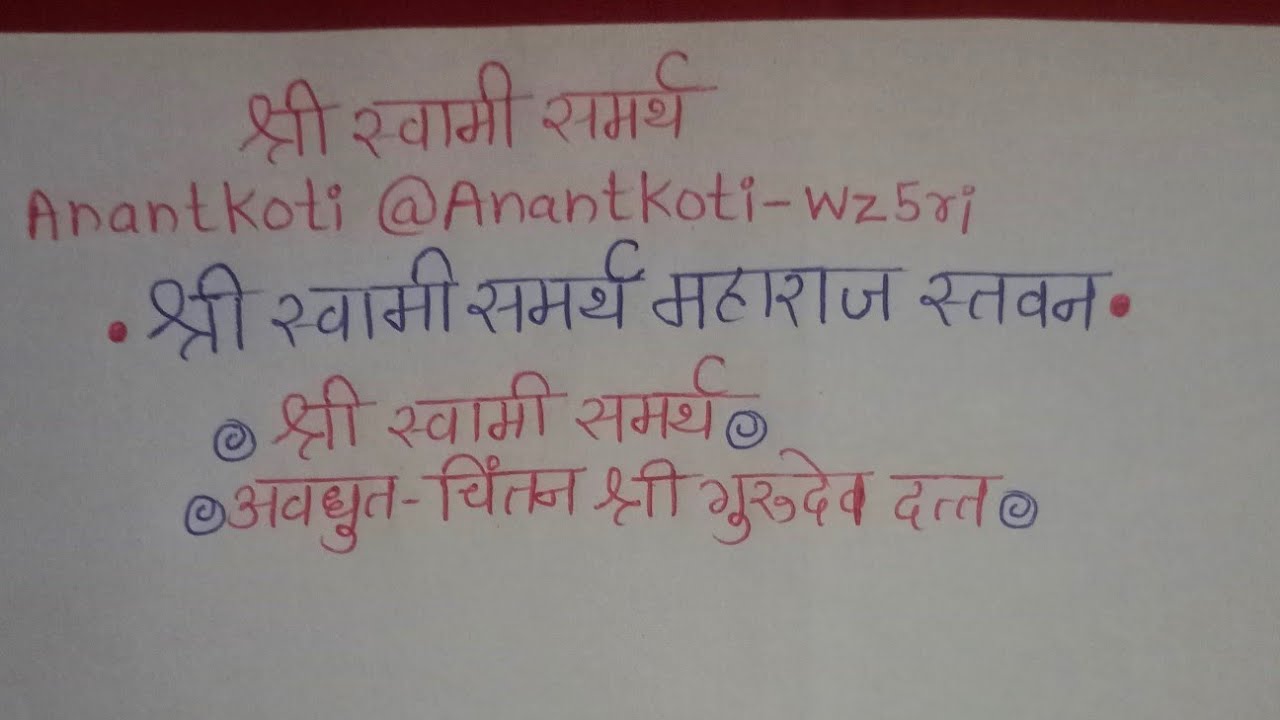 श्री स्वामी समर्थ
Anantkoti @Anantkoti-wz5ri
• श्री स्वामी समर्थ महाराज स्तवन •
श्री स्वामी समर्थ
अवधुत-चिंतन श्री गुरुदेव दत्त